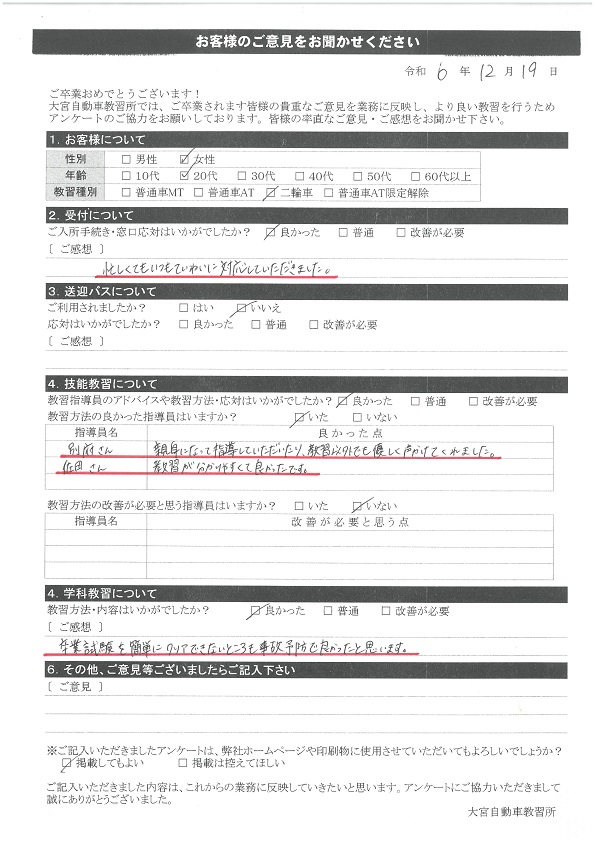 お客様のご意見をお聞かせください
令和 6 年 12 月 19 日
ご卒業おめでとうございます！
大宮自動車教習所では、ご卒業されます皆様の貴重なご意見を業務に反映し、より良い教習を行うため
アンケートのご協力をお願いしております。皆様の率直なご意見・ご感想をお聞かせ下さい。
1. お客様について
性別 □ 男性 ☑ 女性
年齢 □ 10代 ☑ 20代 □ 30代 □ 40代 □ 50代 □ 60代以上
教習種別 □ 普通車MT □ 普通車AT ☑ 二輪車 □ 普通車AT限定解除
2. 受付について
ご入所手続き・窓口応対はいかがでしたか？ ☑ 良かった □ 普通 □ 改善が必要
〔 ご感想 〕
忙しくてもいつもていねいに対応していただきました。
3. 送迎バスについて
ご利用されましたか？ □ はい ☑ いいえ
応対はいかがでしたか？ □ 良かった □ 普通 □ 改善が必要
〔 ご感想 〕
4. 技能教習について
教習指導員のアドバイスや教習方法・応対はいかがでしたか？ ☑ 良かった □ 普通 □ 改善が必要
教習方法の良かった指導員はいますか？ ☑ いた □ いない
指導員名 良かった点
別府さん 親身になって指導していただいたり、教習以外でも優しく声かけてくれました。
佐田さん 教習が分かりやすくて良かったです。
教習方法の改善が必要と思う指導員はいますか？ □ いた ☑ いない
指導員名 改善が必要と思う点
4. 学科教習について
教習方法・内容はいかがでしたか？ ☑ 良かった □ 普通 □ 改善が必要
〔 ご感想 〕
卒業試験を簡単にクリアできないところも事故予防で良かったと思います。
6. その他、ご意見等ございましたらご記入下さい
〔 ご意見 〕
※ご記入いただきましたアンケートは、弊社ホームページや印刷物に使用させていただいてもよろしいでしょうか？
☑ 掲載してもよい □ 掲載は控えてほしい
ご記入いただきました内容は、これからの業務に反映していきたいと思います。アンケートにご協力いただきまして
誠にありがとうございました。
大宮自動車教習所